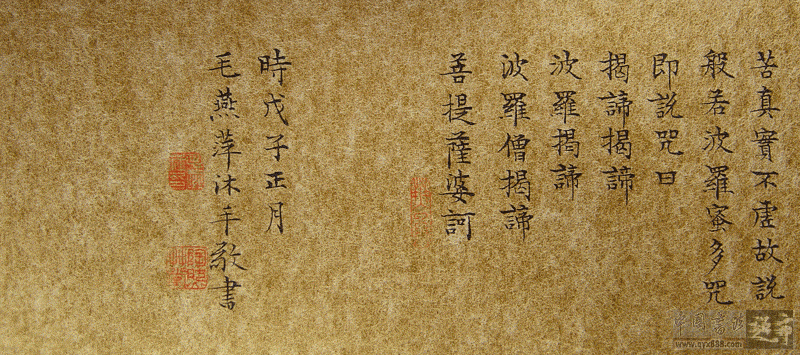 苦真實不虛故説
般若波羅蜜多咒
即説咒曰
揭諦揭諦
波羅揭諦
波羅僧揭諦
菩提薩婆訶
時戊子正月
毛燕萍沐手敬書
中国書法
www.qyx888.com